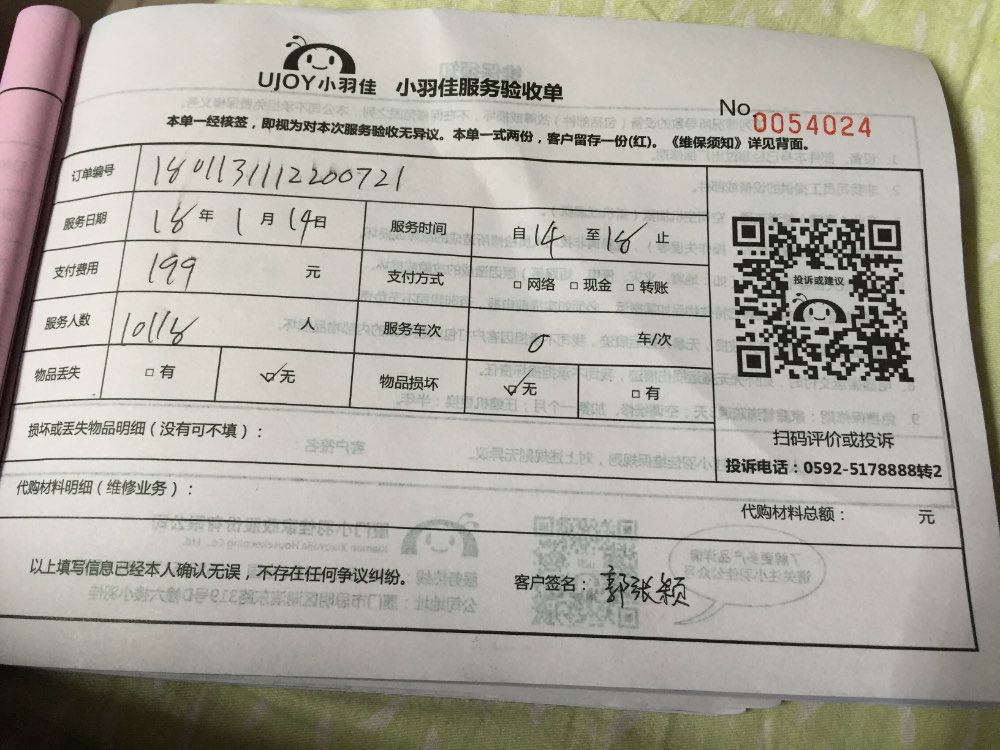 UJOY小羽佳 小羽佳服务验收单
No. 0054024
本单一经核签，即视为对本次服务验收无异议。本单一式两份，客户留存一份(红)。《维保须知》详见背面。
订单编号 1801131112200721
服务日期 18年 1月 14日 服务时间 自 14 至 18 止
支付费用 199 元 支付方式 □ 网络 □ 现金 □ 转账
服务人数 10118 人 服务车次 0 车/次
物品丢失 □ 有 ☑ 无 物品损坏 ☑ 无 □ 有
投诉或建议
扫码评价或投诉
投诉电话：0592-5178888转2
损坏或丢失物品明细（没有可不填）：
代购材料明细（维修业务）：
代购材料总额： 元
以上填写信息已经本人确认无误，不存在任何争议纠纷。
客户签名：郭张颖